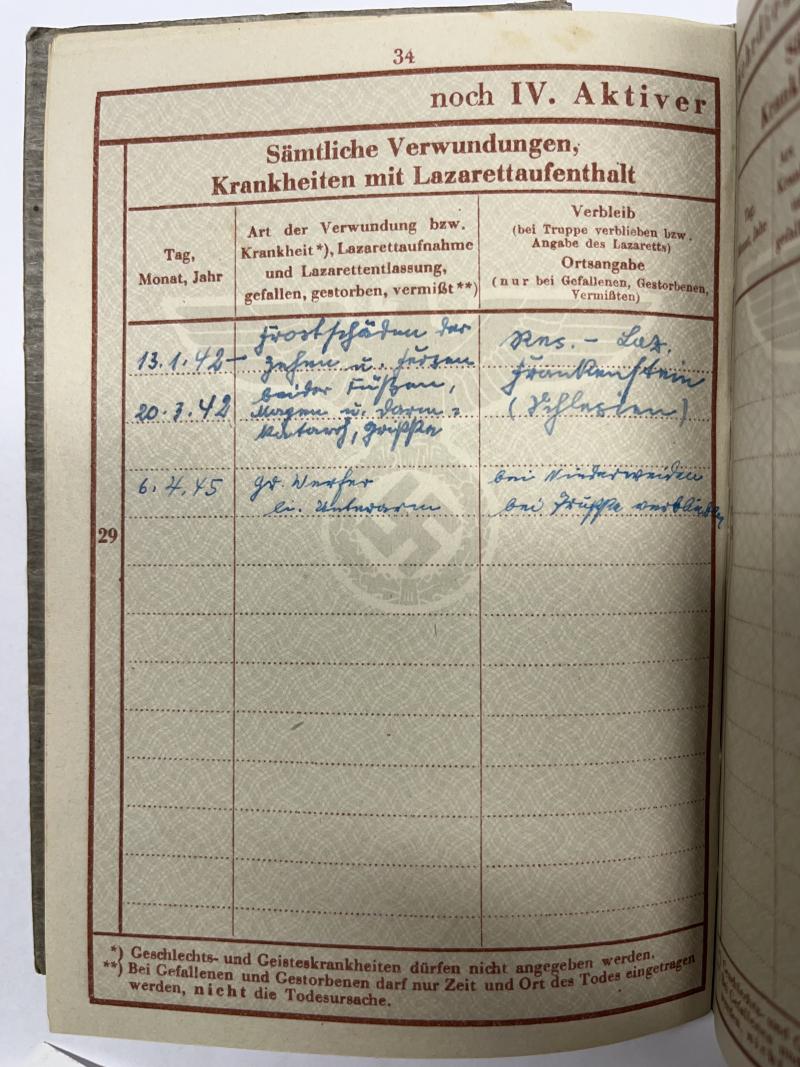 34
noch IV. Aktiver
Sämtliche Verwundungen,
Krankheiten mit Lazarettaufenthalt
Tag,
Monat, Jahr
Art der Verwundung bzw.
Krankheit*), Lazarettaufnahme
und Lazarettentlassung,
gefallen, gestorben, vermißt**)
Verbleib
(bei Truppe verblieben bzw.
Angabe des Lazaretts)
Ortsangabe
(nur bei Gefallenen, Gestorbenen,
Vermißten)
29
13.1.42 -
20.3.42
Frostschäden der
Zehen u. Fersen
beider Füßen,
Magen u. Darm-
katarrh, Grippe
Res. - Laz.
Frankenstein
(Schlesien)
6.4.45
Gr. Werfer
li. Unterarm
bei Niederweiden
bei Truppe verblieben
*) Geschlechts- und Geisteskrankheiten dürfen nicht angegeben werden.
**) Bei Gefallenen und Gestorbenen darf nur Zeit und Ort des Todes eingetragen
werden, nicht die Todesursache.